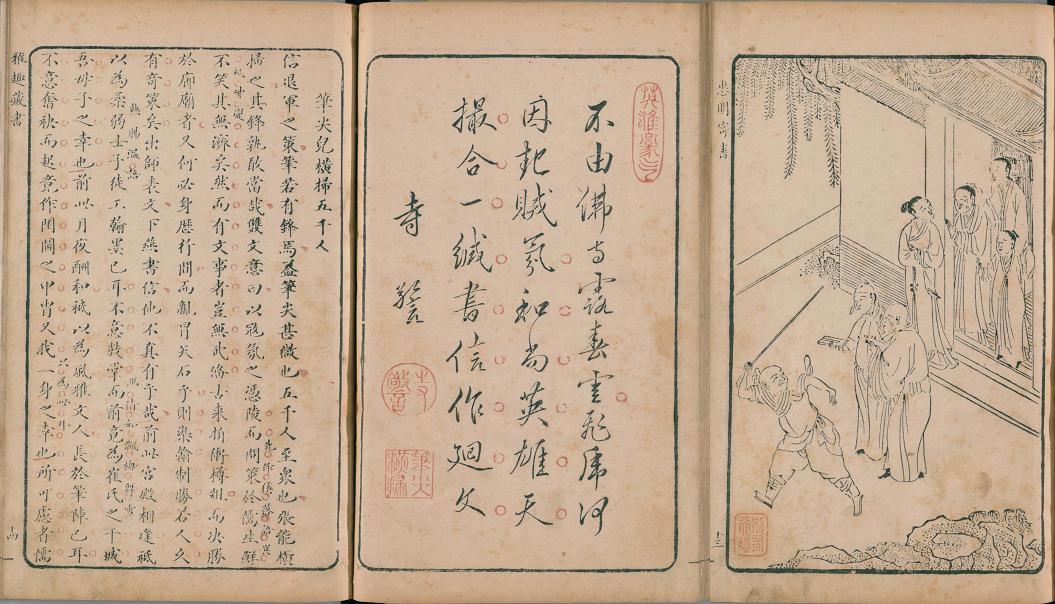 惠明寄書
十三
不由佛寺露春雲飛席何
因起賊氛和尚英雄天
撮合一緘書信作廻文
寺警
寺警
筆尖橫掃
筆尖兒橫掃五千人
信退軍之策筆若有鋒焉蓋筆尖甚微也五千人至衆也張能橫
掃之其鋒孰敢當哉雙文意曰以寇氛之憑陵而問策於儒生鮮
不笑其無濟矣然而有文事者豈無武備古來折衝樽俎而決勝
於廊廟者又何必身歷行間而親冒矢石乎則染翰制勝若人久
有奇策矣出師表文下燕書信他不真有乎哉前此宮殿相逢祇
以為柔弱士子徒工翰墨已耳不意鼓掌而前竟為崔氏之干城
吾母子之幸也前此月夜酬和祇以為風雅文人長於筆陣已耳
不意奮袂而起竟作閨闥之甲冑又我一身之幸也所可慮者儒
雅趣藏書
十四